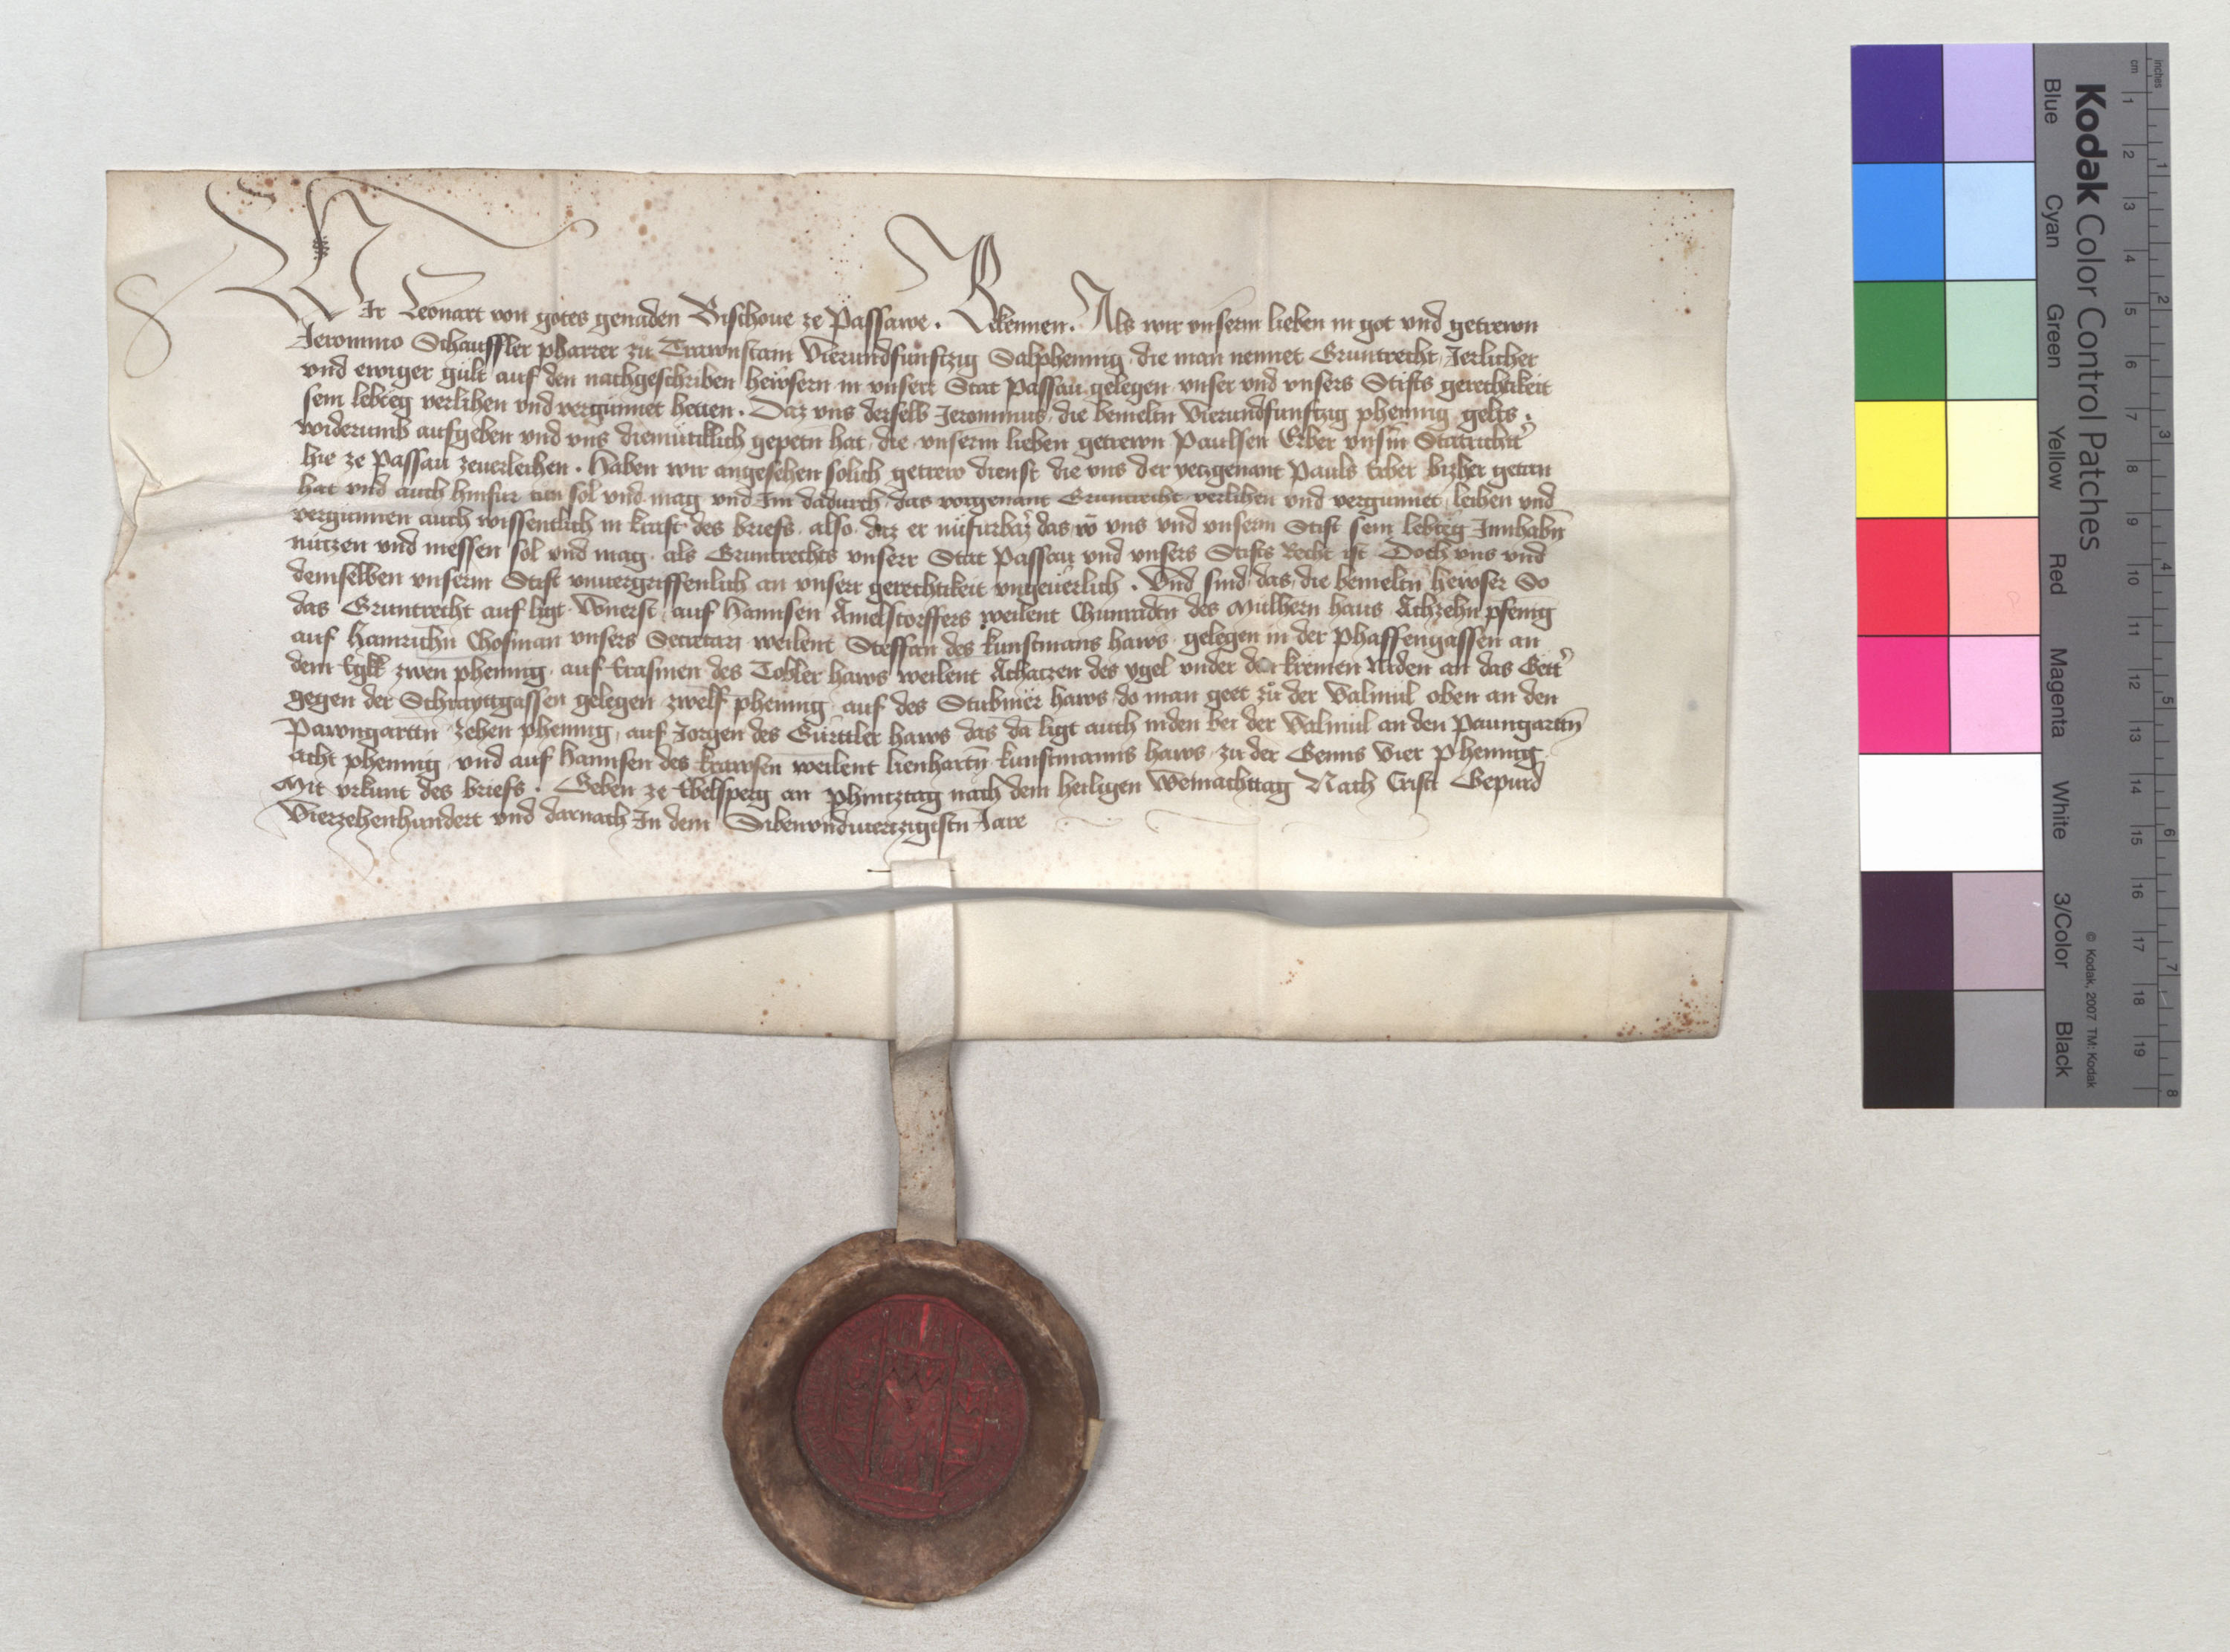 Wir Leonart von gotes genaden Bischoue ze Passawe. Bekennen. Als wir vnserm lieben in got vnd getrewn
Jeronimo Schaufler pharrer zu Trawnstain Vierundfunftzig Salphennig die man nennet Gruntrecht Jerlicher
vnd ewiger gült auf den nachgeschriben hewsern in vnserr Stat passau gelegen vnser vnd vnsers Stifts gerechtikeit
sein lebteg verlihen vnd vergunnet hetten. Daz vns derselb Jeronimus die bemeltn Vierundfunftzig phennig gelts.
widerumb aufgeben vnd vns diemütiklich gepetn hat die vnserm lieben getrewn Paulsen Erber vnserm Statrichter
hie ze Passau zeuerleihen. Haben wir angesehen solich getrew dienst die vns der yetzgenant Pauls Erber bizher getan
hat vnd auch hinfur tun sol vnd mag vnd Im dadurch das vorgenant Gruntrecht verlihen vnd vergunnet leihen vnd
vergunnen auch wissentlich in kraft des briefs also daz er nufurbaz das vo vns vnd vnserm Stift sein lebteg Innhabn
nützen vnd niessen sol vnd mag als Gruntrechts vnserr Stat Passau vnd vnsers Stifts Recht ist Doch vns vnd
demselben vnserm Stift vnuergriffenlich an vnserr gerechtikeit vngeuerlich. Vnd sind das die bemeltn hewser So
das Gruntrecht auf ligt Vonerst auf Hannsen Amelstorffers weilent Chunradtn des Mülhern haus Achzehn pfenig
auf Hainrichn Chosman vnsers Secretari weilent Steffan des kunstmans haws gelegen in der phaffengassen an
dem Egkk zwen phennig auf Erasmen des Tobler haws weilent Achatzen des ygel vnder den kremen Niden an das Gett
gegen der Schrottgassen gelegen zwelf phennig auf des Stubmer haws do man geet zu der Walmül oben an den
Pawngarttn zehen phennig auf Jorgen des Gürttler haws das da ligt auch niden bei der Walmül an den Paungarttn
acht phennig vnd auf Hannsen des krawsen weilent lienhartn kunstmanns haws zu der Genns Vier phennig
Mit vrkunt des briefs. Geben ze Ebelsperg an phintztag nach dem heiligen Weinachttag Nach Cristi Gepurd
Vierzehenhundert vnd darnach In dem Sibenvndvierzigistn Jare
Kodak Color Control Patches
Blue Cyan Green Yellow Red Magenta White 3/Color Black
© Kodak, 2007 TM: Kodak
cm 1 2 3 4 5 6 7 8 9 10 11 12 13 14 15 16 17 18 19
inches 1 2 3 4 5 6 7 8